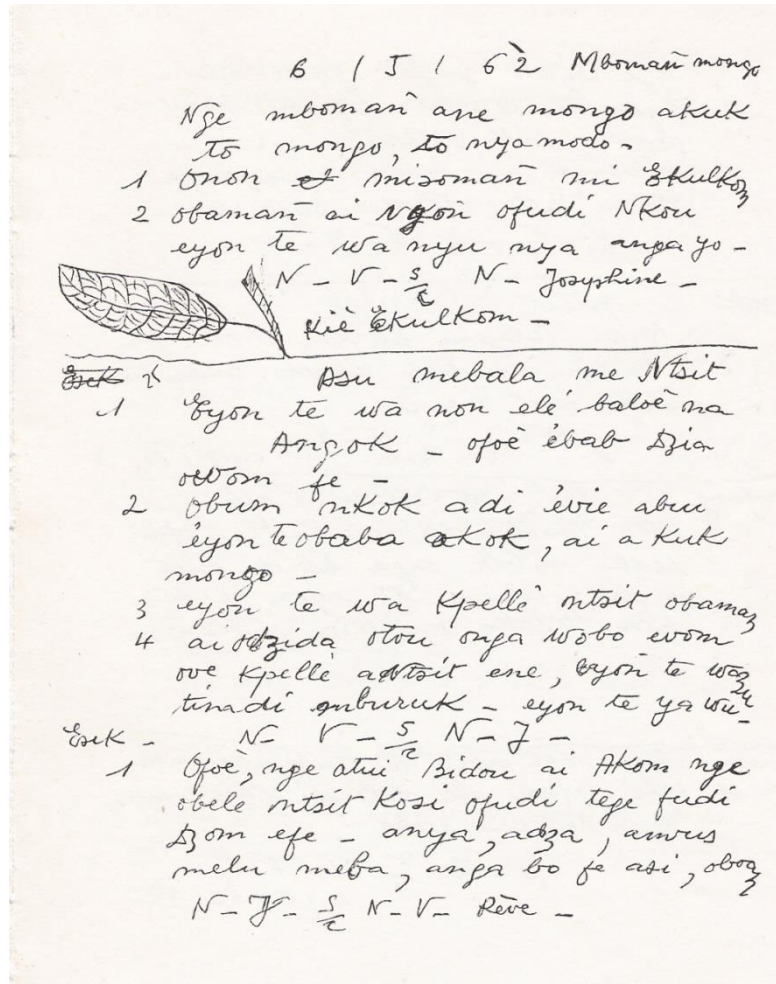 6 / 5 / 62 Mbomañ mongo
Nge mbomañ ane mongo akuk
to mongo, to nya modo -
1 Onon misomañ mi Ekulkom
2 obamañ ai Ngoñ ofudi Nkou
eyon te wa nyu nya anga yo -
N - V - S/c N - Josephine -
kiè Ekulkom -
Esek Asu mebala me Ntsit
1 Eyon te wa non elé baloè na
Angok - ofoè ébab Dzia
owom fe -
2 Obum nkok a di évie abui
éyon te obaba akok, ai a kuk
mongo -
3 eyon te wa Kpellè ntsit obamaz
4 ai odzida otou onga wobo evom
ove Kpellè a Ntsit ene, eyon te waz
tinadi mburuk - eyon te ya wu -
Esek - N - V - S/c N - J -
1 Ofoè, nge atui Bidou ai Akom nge
obele ntsit Kosi ofudi tege fudi
Dzom efe - anya, adza, amvus
melu meba, anga bo fe asi, oboaz
N - J - S/c N - V - Rêve -